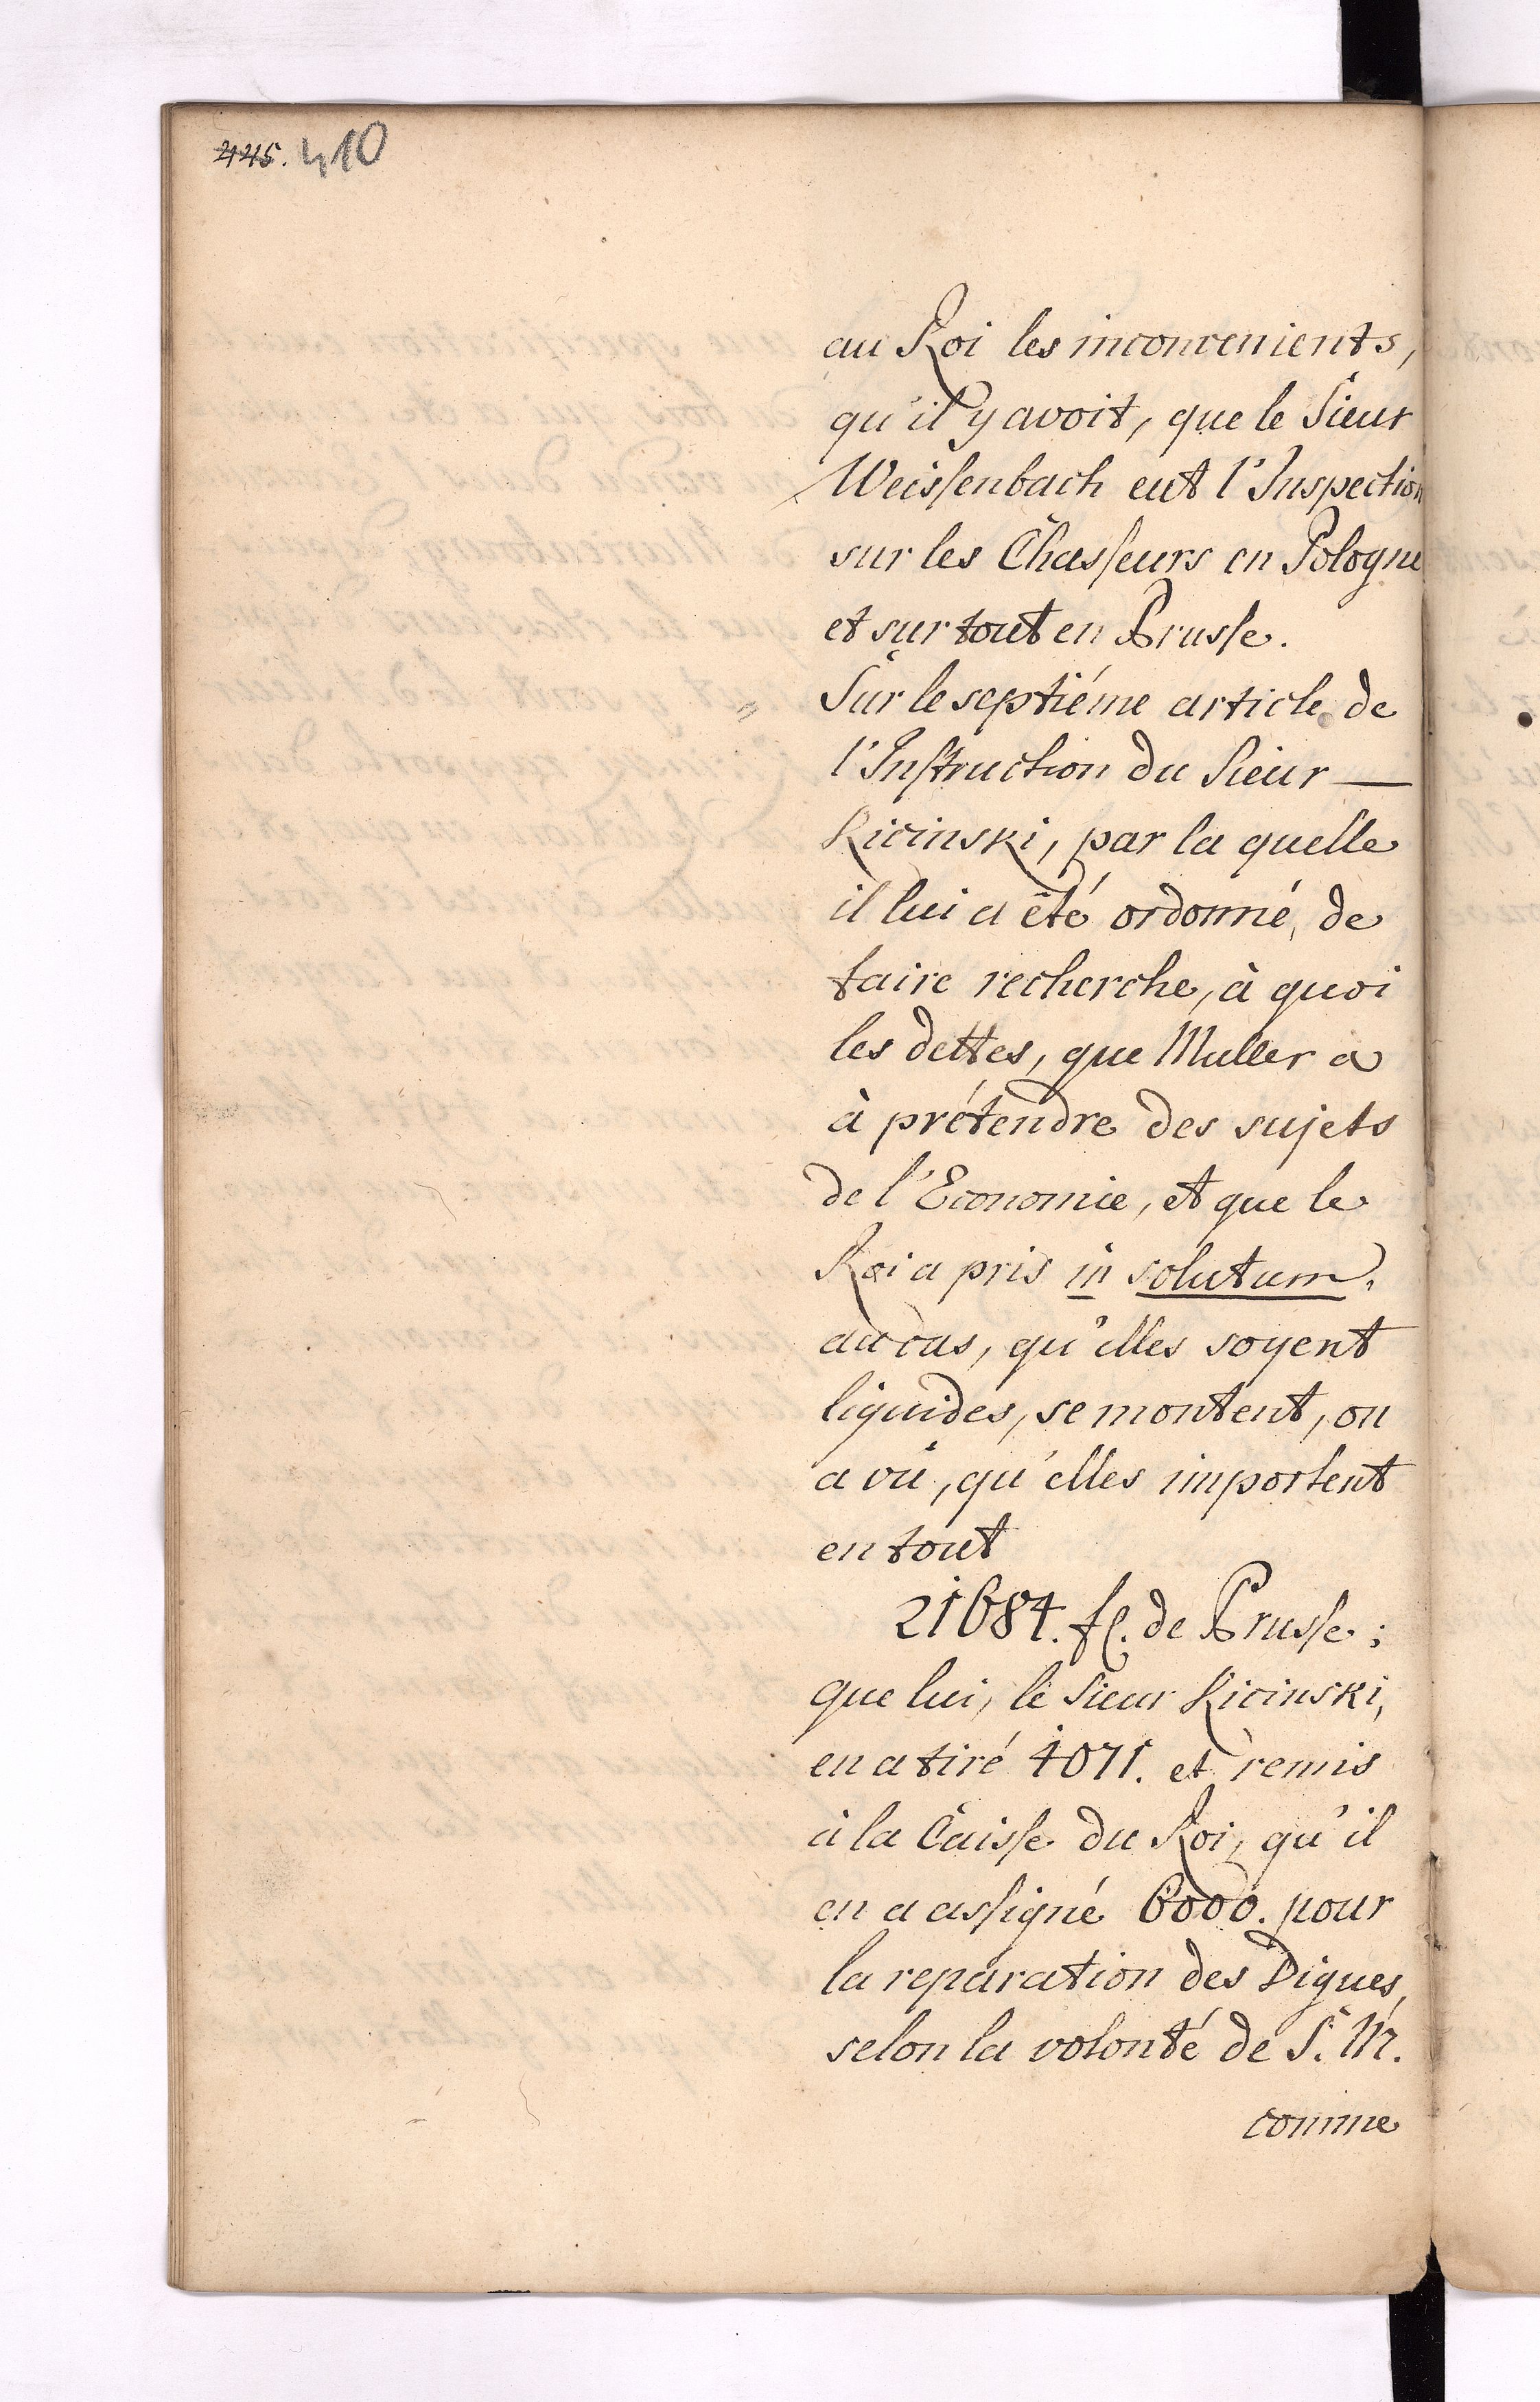 445. 410
au Roi les inconvenients,
qu'il y avoit, que le Sieur
Weissenbach eut l'Inspection
sur les Chasseurs en Pologne
et sur tout en Prusse.
Sur le septiéme article de
l'Instruction du Sieur —
Kicinski, par la quelle
il lui a été ordonné, de
faire recherche, à quoi
les dettes, que Muller a
à prétendre des sujets
de l'Economie, et que le
Roi a pris in solutum,
au cas, qu'elles soyent
liquides, se montent, on
a vû, qu'elles importent
en tout
21684. fl. de Prusse;
que lui, le Sieur Kicinski,
en a tiré 4071. et remis
à la Caisse du Roi, qu'il
en a assigné 6000. pour
la reparation des Digues,
selon la volonté de S. M.
comme